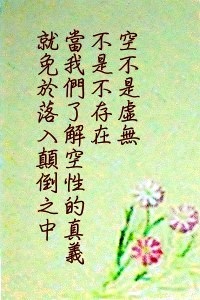 空不是虛無
不是不存在
當我們了解空性的真義
就免於落入顛倒之中